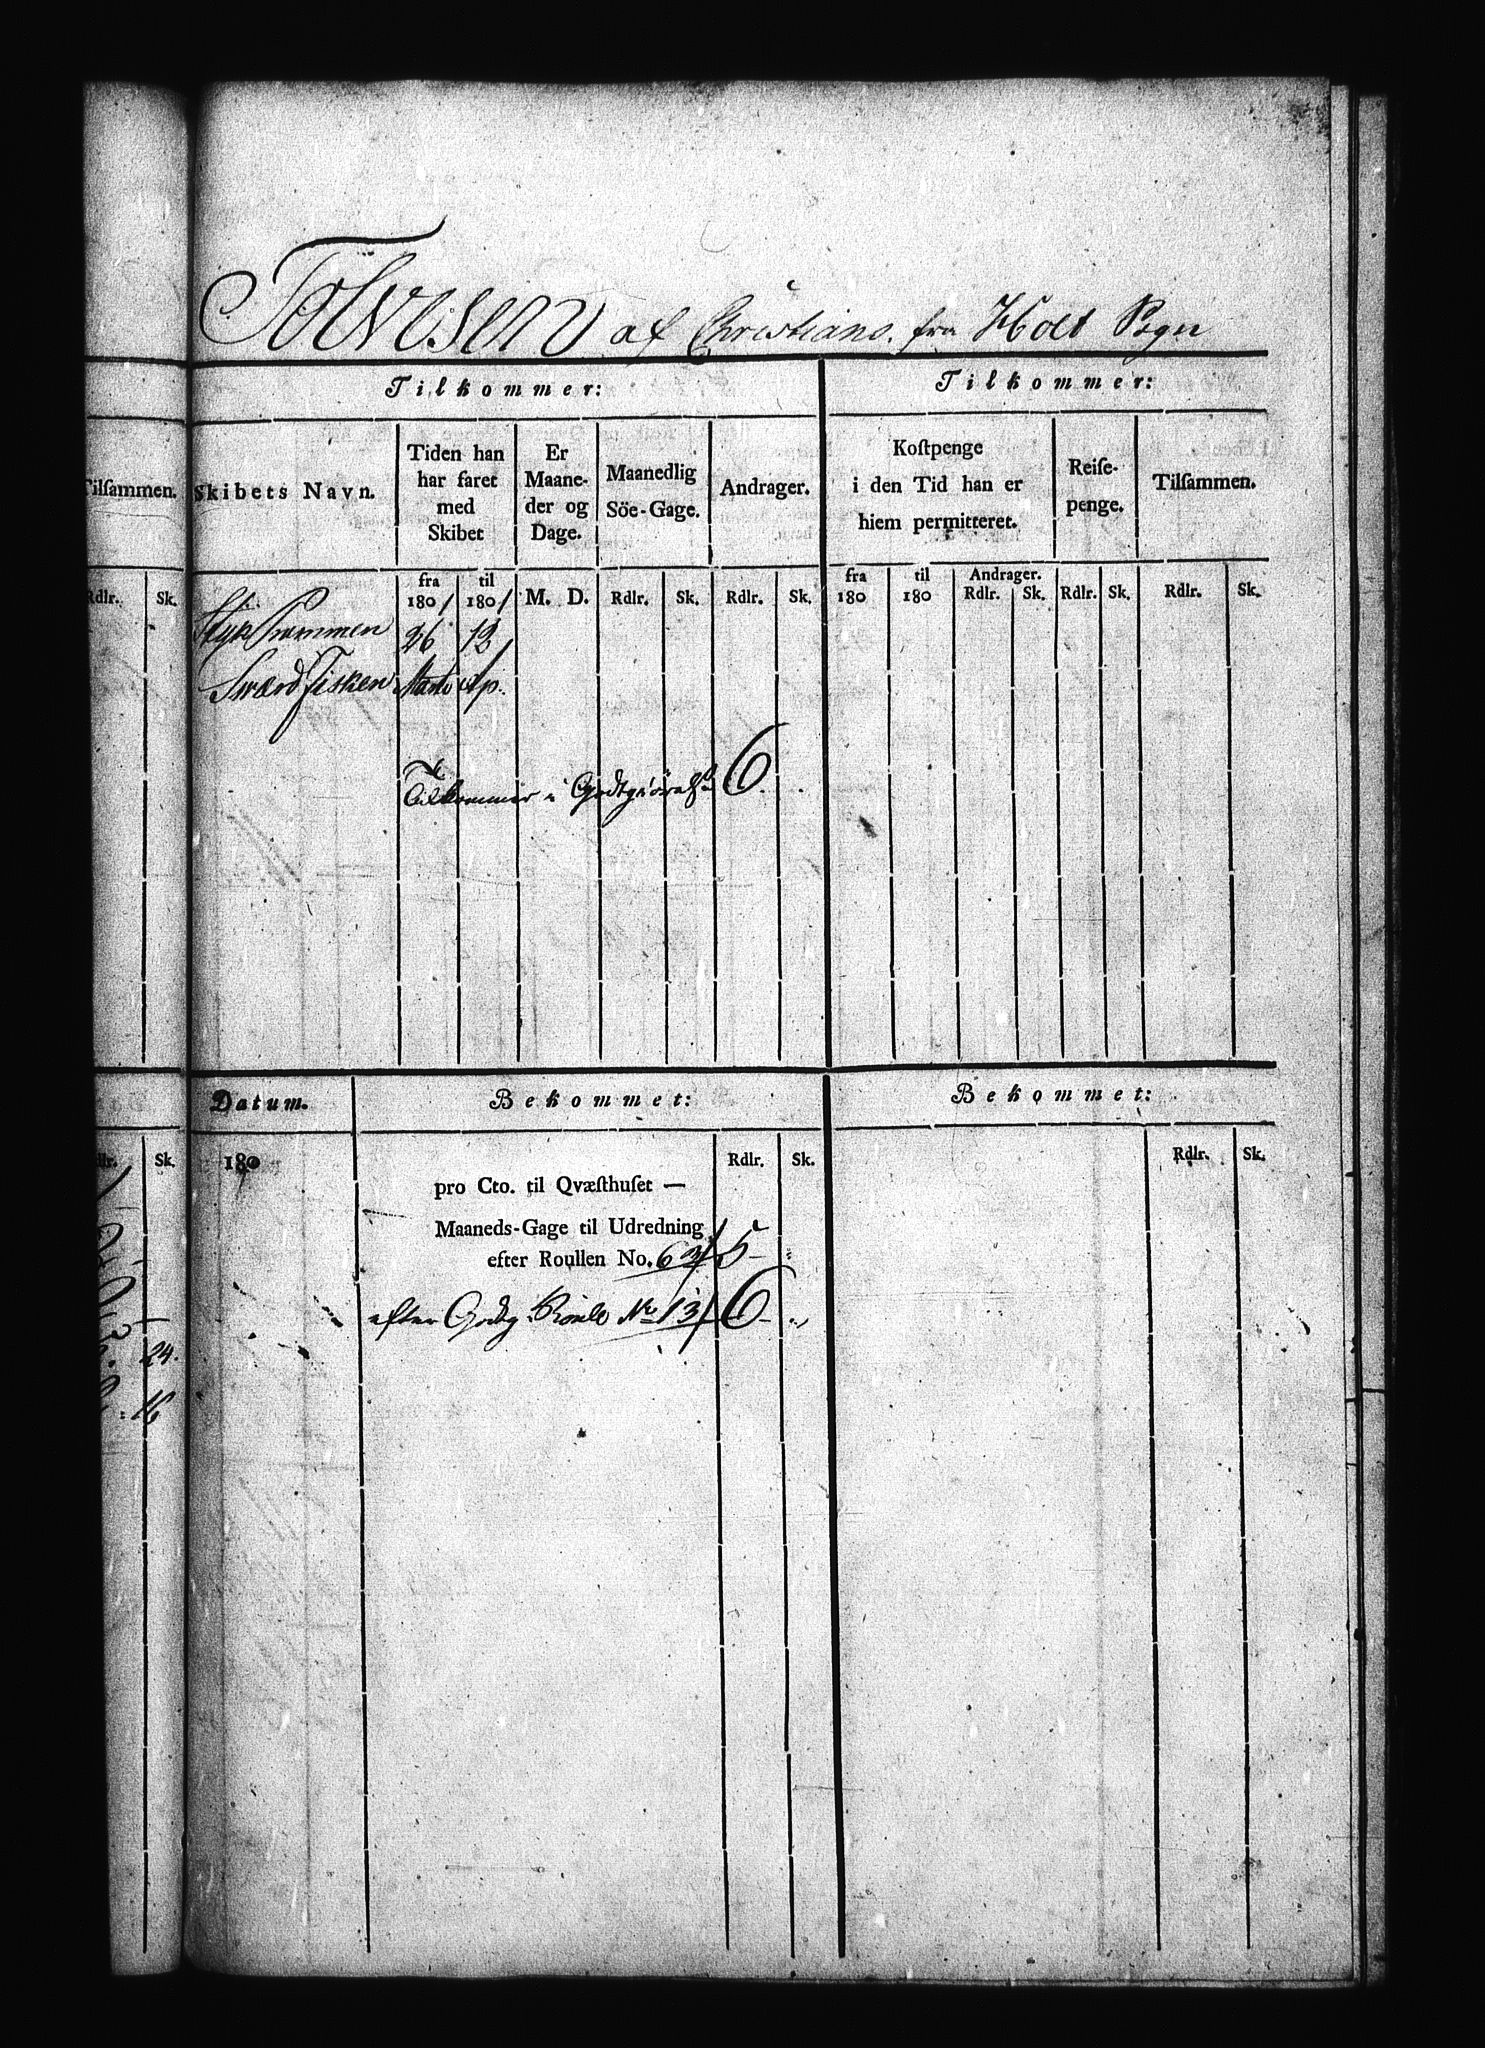 Tolvesen af Christians. fra Holt Sogn
Tilkommer:
Tilkommer:
Tilsammen.
Skibets Navn.
Tiden han har faret med Skibet
Er Maane-der og Dage.
Maanedlig Söe-Gage.
Andrager.
Kostpenge i den Tid han er hiem permitteret.
Reise-penge.
Tilsammen.
Rdlr. Sk.
fra 1801 til 1801 M. D. Rdlr. Sk. Rdlr. Sk. fra 180 til 180 Andrager. Rdlr. Sk. Rdlr. Sk. Rdlr. Sk.
Styk Prammen 26 12
Sværd Fisken Marts Ap.
Tilkommer i Godtgiørelse 6.
Datum. Bekommet: Bekommet:
Rdlr. Sk. 180 Rdlr. Sk. Rdlr. Sk.
pro Cto. til Qvæsthuset —
Maaneds-Gage til Udredning
efter Roullen No. 63 5 -
efter Godtg. Roulle No 13 6 - "
24.
16